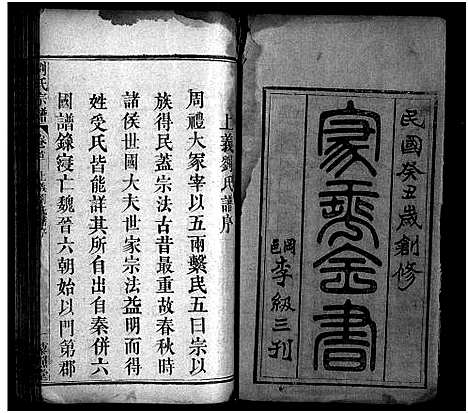 民國癸丑歲創修
家乘全書
岡邑李級三刊
上義劉氏譜序
周禮大冢宰以五兩繫民五曰宗以
族得民蓋宗法古昔最重故春秋時
諸侯世國大夫世家宗法益明而得
姓受氏皆能詳其所自出自秦併六
國譜錄寖亡魏晉六朝始以門第郡
劉氏宗譜